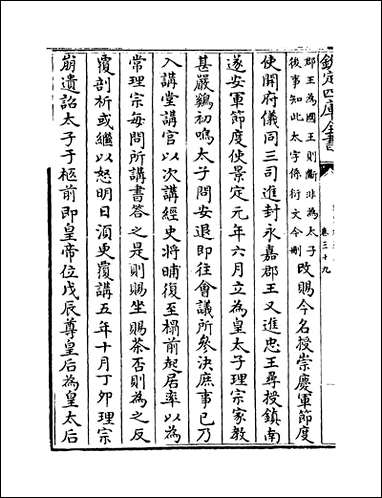 欽定四庫全書
卷三十九
郡王為國王則斷非為太子
後事知此太字係衍文今刪
改賜今名授崇慶軍節度
使開府儀同三司進封永嘉郡王又進忠王尋授鎮南
遂安軍節度使景定元年六月立為皇太子理宗家教
甚嚴鷄初鳴太子問安退即往會議所參決庶事已乃
入講堂講官以次講經史將晡復至榻前起居率以為
常理宗每問所講書答之是則賜坐賜茶否則為之反
覆剖析或繼以怒明日須更覆講五年十月丁卯理宗
崩遺詔太子子柩前即皇帝位戊辰尊皇后為皇太后